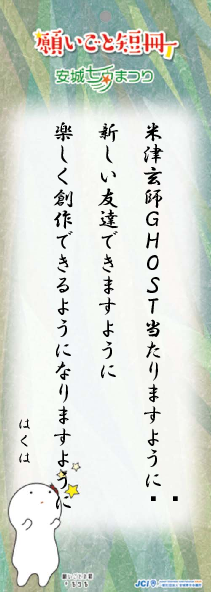 願いごと短冊
安城七夕まつり
米津玄師GHOST当たりますように
新しい友達できますように
楽しく創作できるようになりますように
はくは
JCI